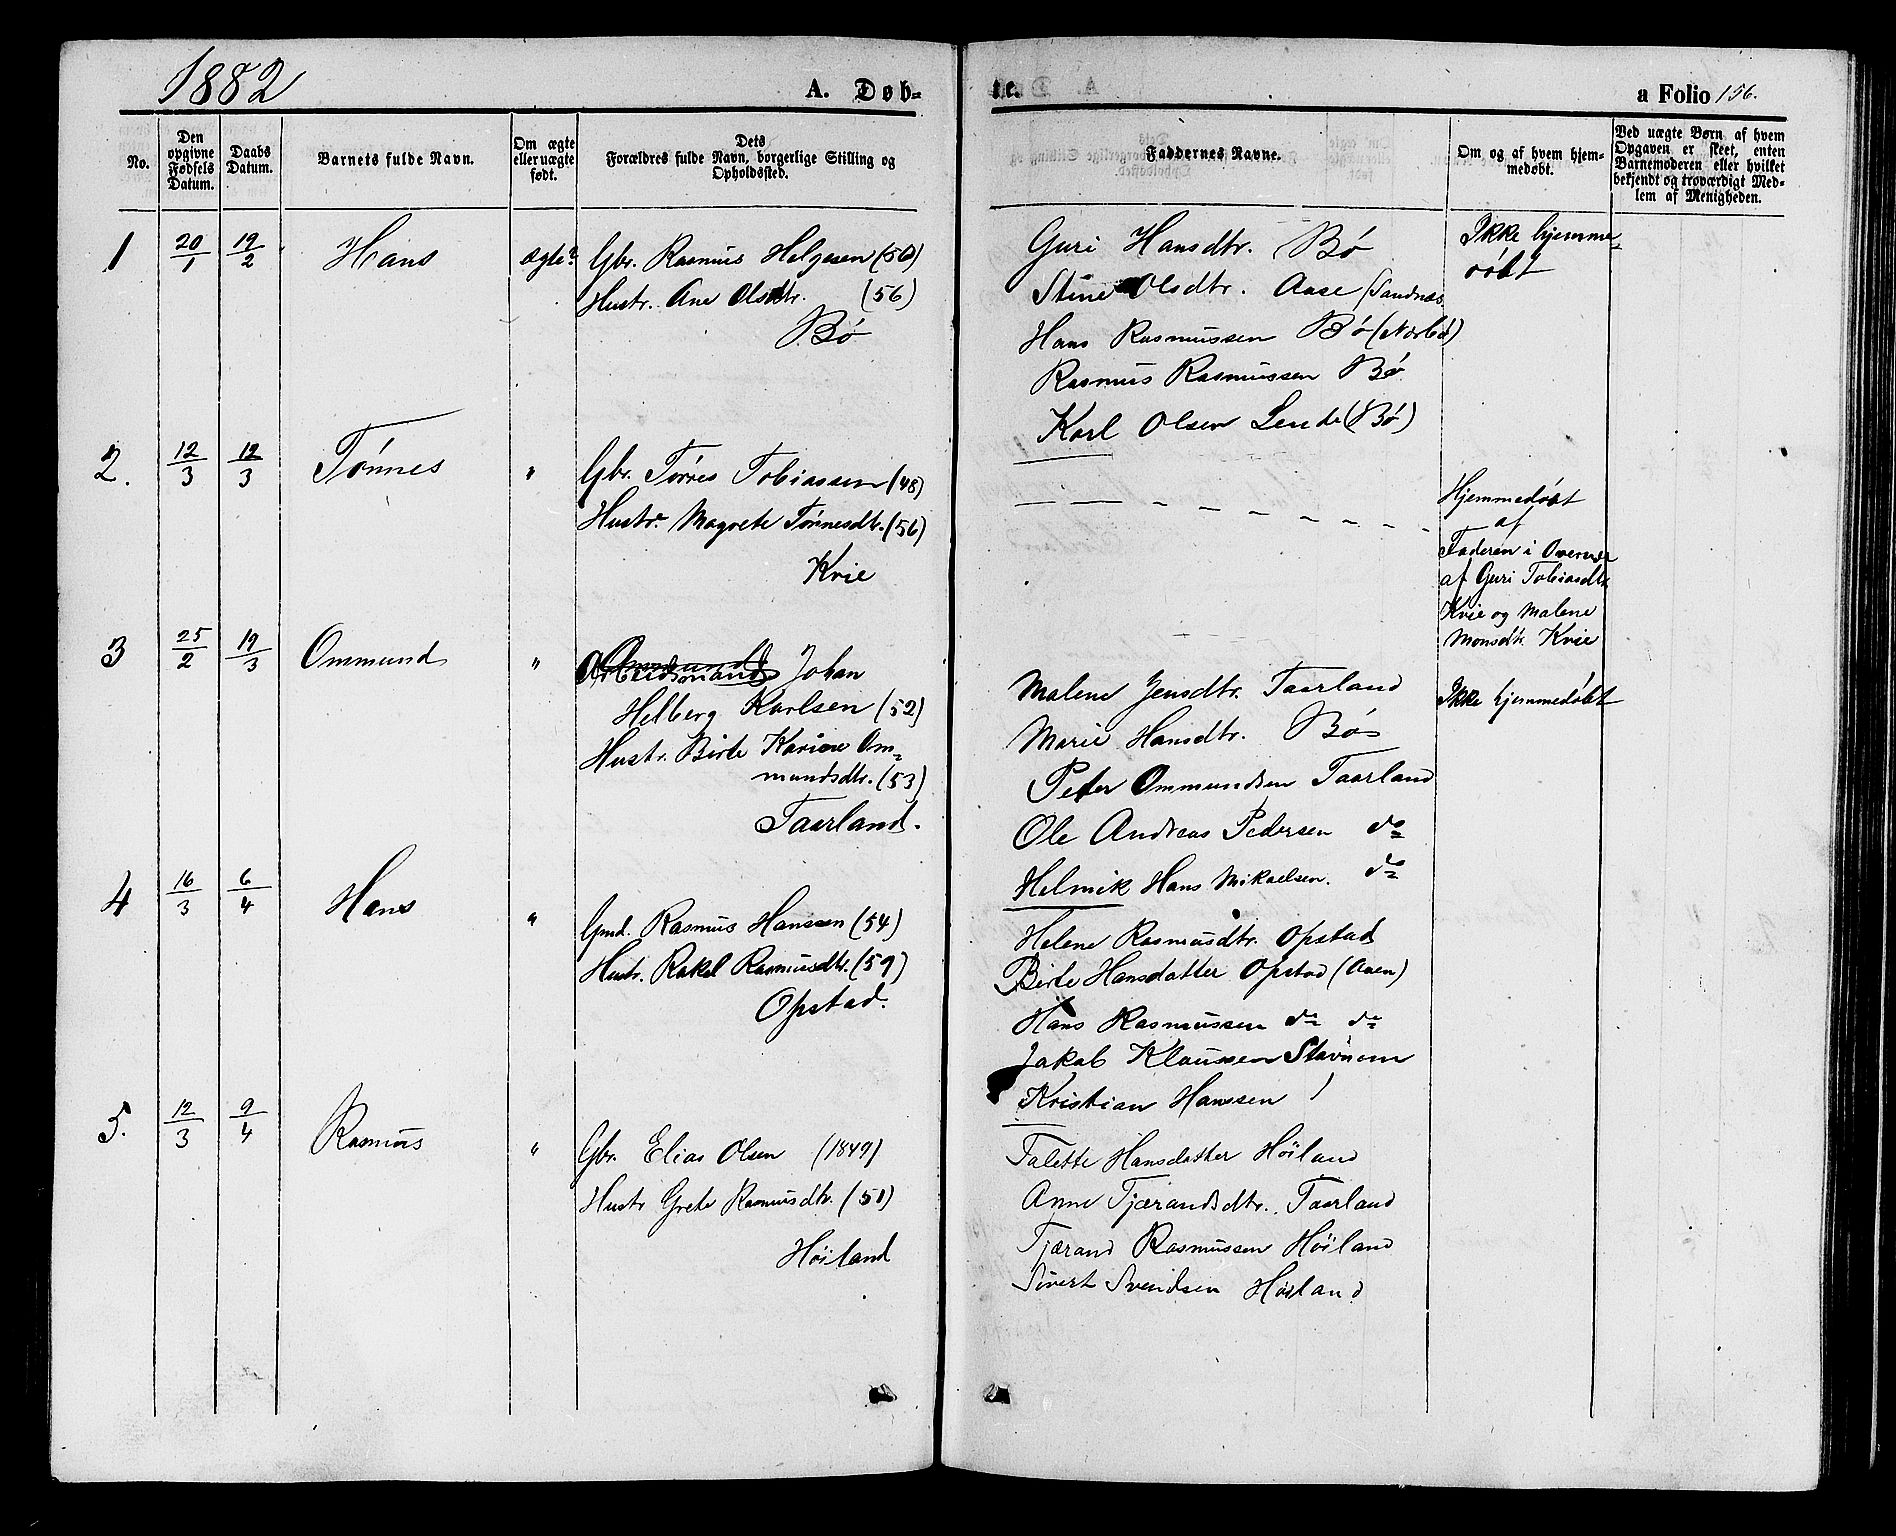 1882
A. Døb-
te.
a Folio 156.
No.
Den opgivne Fødsels Datum.
Daabs Datum.
Barnets fulde Navn.
Om ægte eller uægte født.
Dets Forældres fulde Navn, borgerlige Stilling og Opholdssted.
Faddernes Navne.
Om og af hvem hjemmedøbt.
Ved uægte Børn af hvem Opgaven er skeet, enten Barnemoderen eller hvilket bekjendt og troværdigt Medlem af Menigheden.
1 20/1 19/2 Hans ægte
Gbr. Rasmus Helgesen (50)
Hustr. Ane Olsdtr. (56)
Bø
Guri Hansdtr. Bø
Stine Olsdtr. Aase (Sandnes
Hans Rasmussen Bø (Nærbø)
Rasmus Rasmussen Bø
Karl Olsen Lende (Bø)
Ikke hjemme-
døbt
2. 12/3 12/3 Tønnes "
Gbr. Tørres Tobiassen (48)
Hustr. Magrete Tønnesdtr. (56)
Kvie
Hjemmedøbt
af
Faderen i Overvær
af Guri Tobiasdtr
Kvie og Malene
Monsdtr. Kvie
3 25/2 19/3 Ommund "
Arbeidsmand Johan
Helberg Karlsen (52)
Hustr. Birte Karine Om-
mundsdtr. (53)
Taarland.
Malene Jensdtr. Taarland
Marie Hansdtr. Bø
Peter Ommundsen Taarland
Ole Andreas Pedersen do
Helmik Hans Mikaelsen. do
Ikke hjemmedøbt
4 16/3 6/4 Hans "
Gmd. Rasmus Hanssen (54)
Hustr. Rakel Rasmusdtr. (59)
Opstad.
Helene Rasmusdtr. Opstad
Birte Hansdatter Opstad (Aaen)
Hans Rasmussen do do
Jakob Klaussen Stavnem
Kristian Hanssen
5. 12/3 9/4 Rasmus "
Gbr. Elias Olsen (1849)
Hustr Grete Rasmusdtr. (51)
Høiland
Talette Hansdatter Høiland
Anne Tjærandsdtr. Taarland
Tjærand Rasmussen Høiland
Sivert Svendsen Høiland